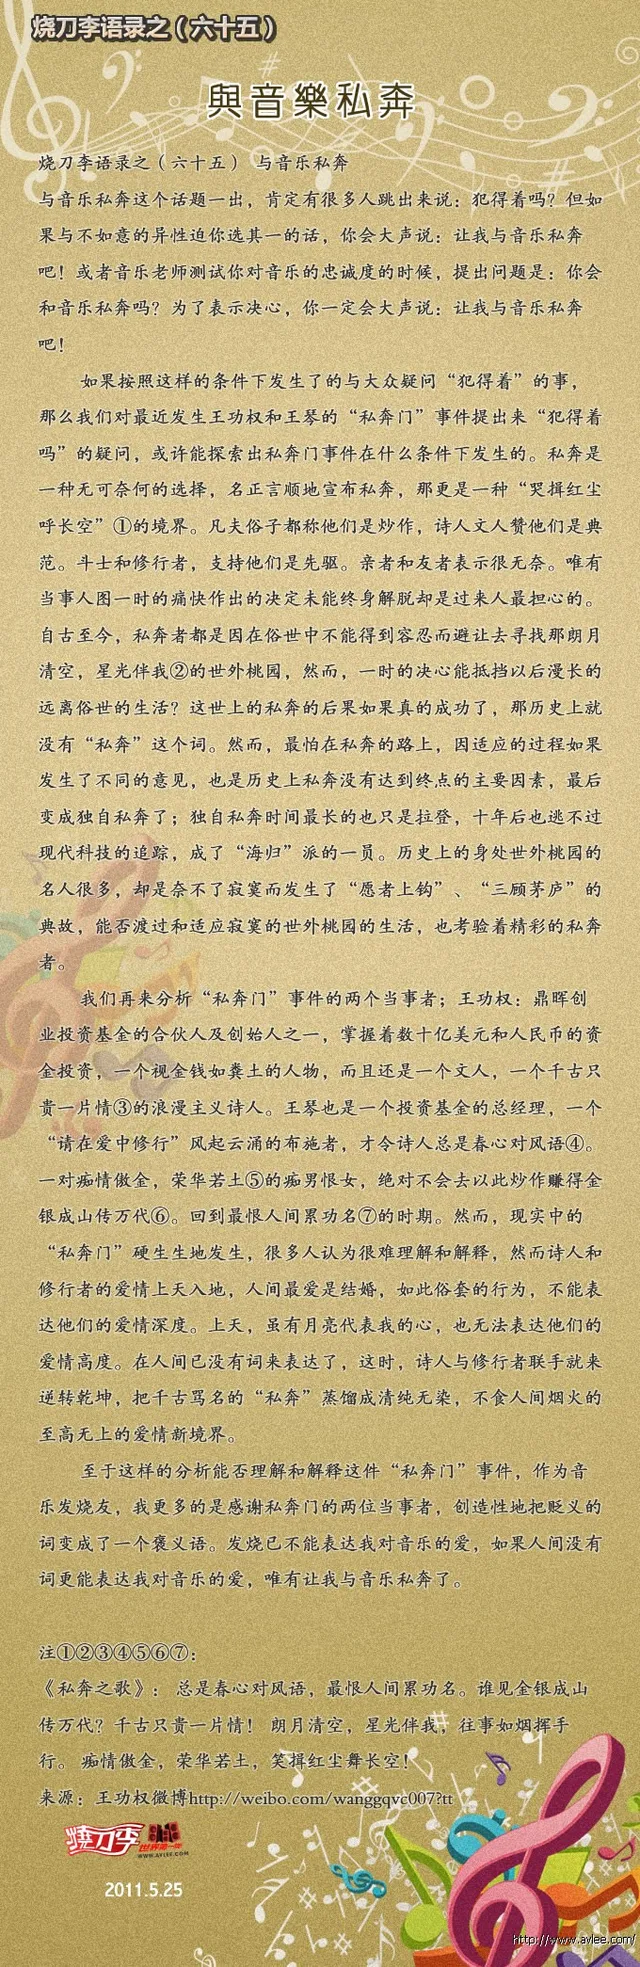 烧刀李语录之（六十五）
與音樂私奔
烧刀李语录之（六十五） 与音乐私奔
与音乐私奔这个话题一出，肯定有很多人跳出来说：犯得着吗？但如
果与不如意的异性迫你选其一的话，你会大声说：让我与音乐私奔
吧！或者音乐老师测试你对音乐的忠诚度的时候，提出问题是：你会
和音乐私奔吗？为了表示决心，你一定会大声说：让我与音乐私奔
吧！
如果按照这样的条件下发生了的与大众疑问“犯得着”的事，
那么我们对最近发生王功权和王琴的“私奔门”事件提出来“犯得着
吗”的疑问，或许能探索出私奔门事件在什么条件下发生的。私奔是
一种无可奈何的选择，名正言顺地宣布私奔，那更是一种“哭揖红尘
呼长空”①的境界。凡夫俗子都称他们是炒作，诗人文人赞他们是典
范。斗士和修行者，支持他们是先驱。亲者和友者表示很无奈。唯有
当事人图一时的痛快作出的决定未能终身解脱却是过来人最担心的。
自古至今，私奔者都是因在俗世中不能得到容忍而避让去寻找那朗月
清空，星光伴我②的世外桃园，然而，一时的决心能抵挡以后漫长的
远离俗世的生活？这世上的私奔的后果如果真的成功了，那历史上就
没有“私奔”这个词。然而，最怕在私奔的路上，因适应的过程如果
发生了不同的意见，也是历史上私奔没有达到终点的主要因素，最后
变成独自私奔了；独自私奔时间最长的也只是拉登，十年后也逃不过
现代科技的追踪，成了“海归”派的一员。历史上的身处世外桃园的
名人很多，却是奈不了寂寞而发生了“愿者上钩”、“三顾茅庐”的
典故，能否渡过和适应寂寞的世外桃园的生活，也考验着精彩的私奔
者。
我们再来分析“私奔门”事件的两个当事者；王功权：鼎晖创
业投资基金的合伙人及创始人之一，掌握着数十亿美元和人民币的资
金投资，一个视金钱如粪土的人物，而且还是一个文人，一个千古只
贵一片情③的浪漫主义诗人。王琴也是一个投资基金的总经理，一个
“请在爱中修行”风起云涌的布施者，才令诗人总是春心对风语④。
一对痴情傲金，荣华若土⑤的痴男恨女，绝对不会去以此炒作赚得金
银成山传万代⑥。回到最恨人间累功名⑦的时期。然而，现实中的
“私奔门”硬生生地发生，很多人认为很难理解和解释，然而诗人和
修行者的爱情上天入地，人间最爱是结婚，如此俗套的行为，不能表
达他们的爱情深度。上天，虽有月亮代表我的心，也无法表达他们的
爱情高度。在人间已没有词来表达了，这时，诗人与修行者联手就来
逆转乾坤，把千古骂名的“私奔”蒸馏成清纯无染，不食人间烟火的
至高无上的爱情新境界。
至于这样的分析能否理解和解释这件“私奔门”事件，作为音
乐发烧友，我更多的是感谢私奔门的两位当事者，创造性地把贬义的
词变成了一个褒义语。发烧已不能表达我对音乐的爱，如果人间没有
词更能表达我对音乐的爱，唯有让我与音乐私奔了。
注①②③④⑤⑥⑦：
《私奔之歌》： 总是春心对风语，最恨人间累功名。谁见金银成山
传万代？千古只贵一片情！ 朗月清空，星光伴我，往事如烟挥手
行。 痴情傲金，荣华若土，笑揖红尘舞长空！
来源：王功权微博http://weibo.com/wanggqvc007?tt
烧刀李 世界第一年
WWW.AVLEE.COM
2011.5.25
http://www.avlee.com/